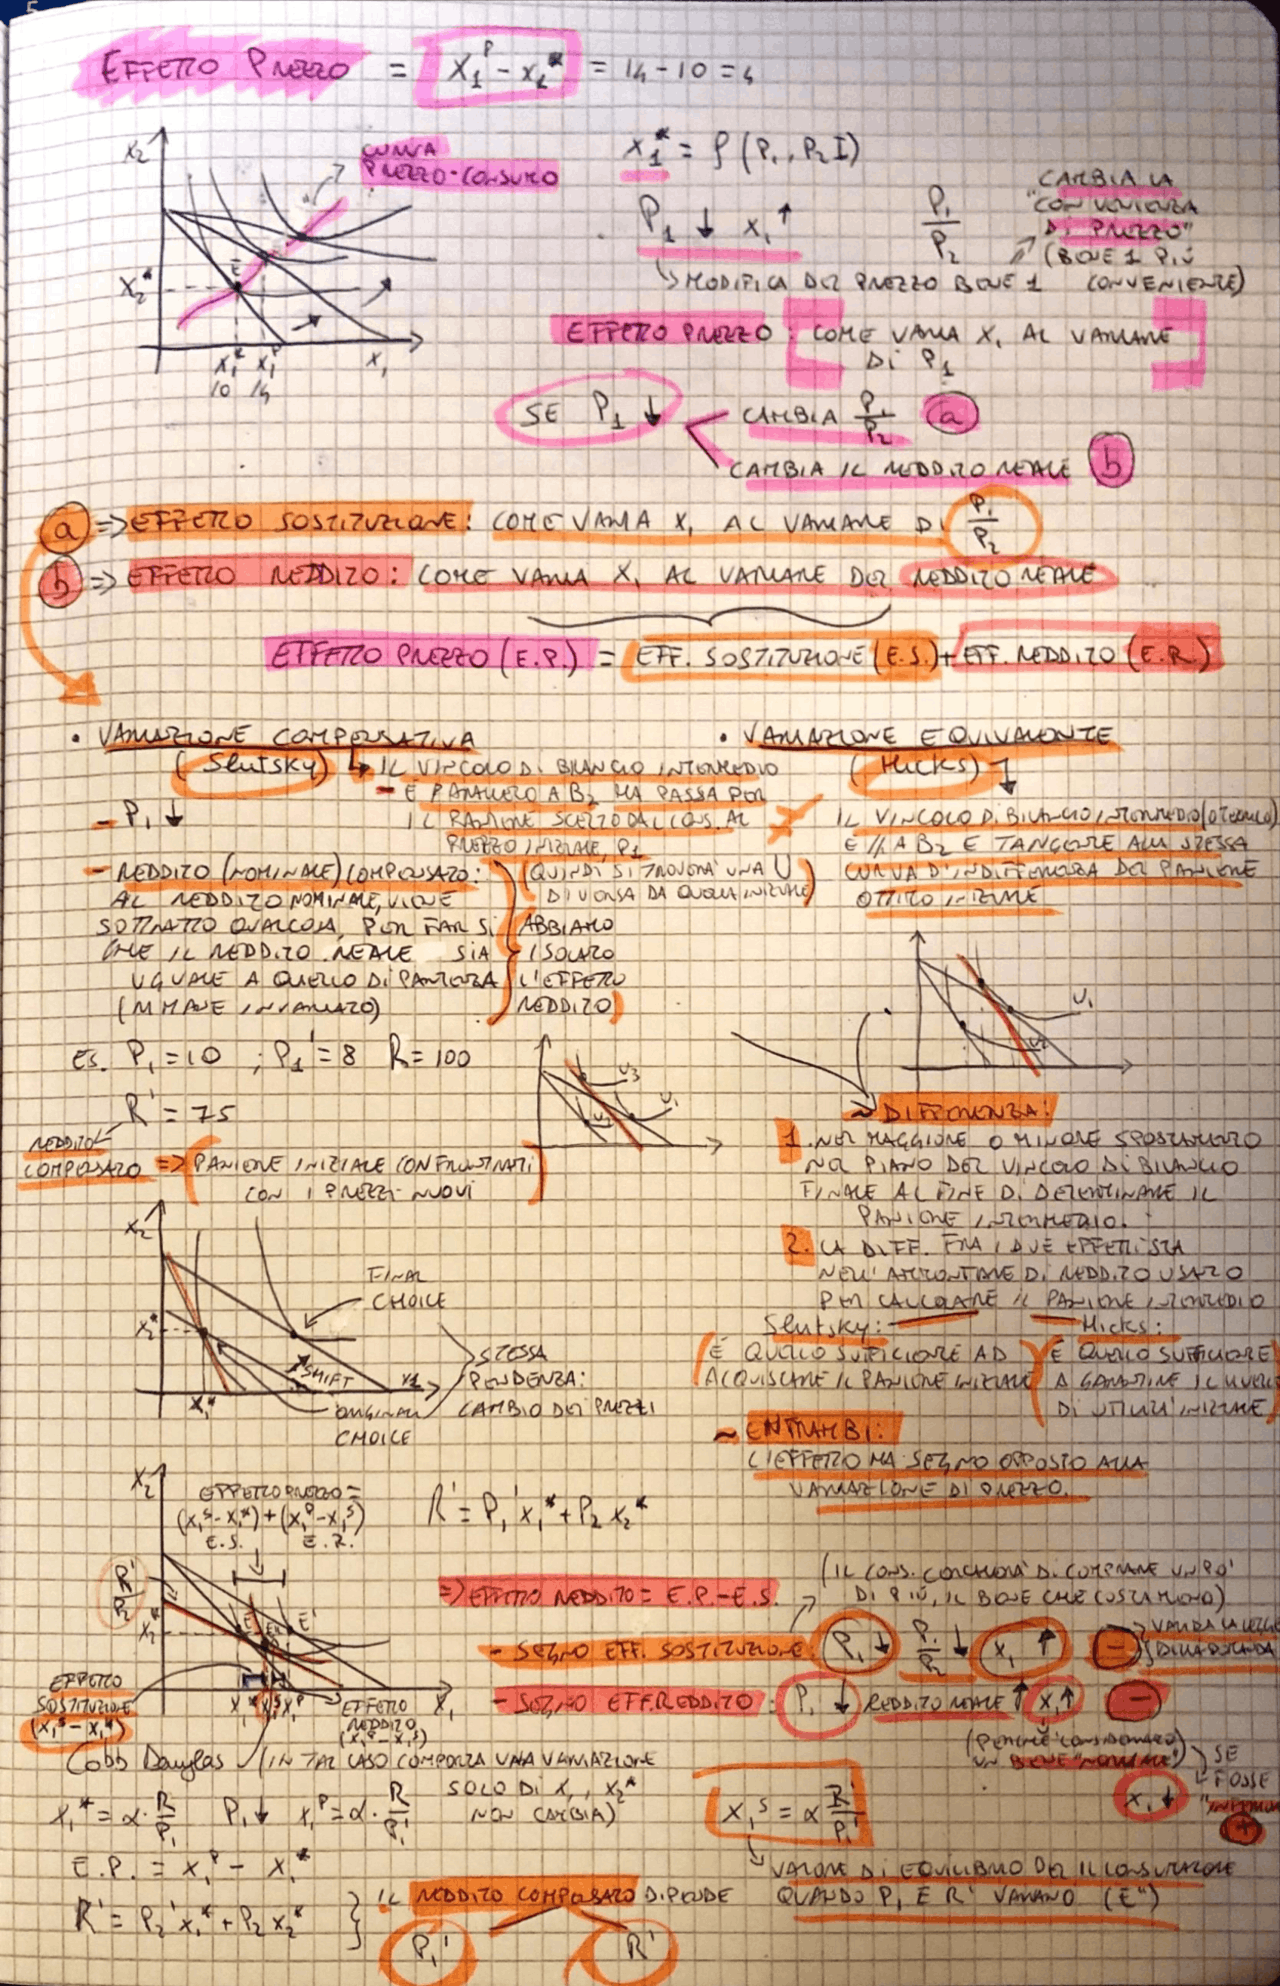 EFFETTO PREZZO = X₁ᴾ - X₁* = 14 - 10 = 4
X₂
CURVA
PREZZO-CONSUMO
X₁* = f (P₁, P₂ I)
P₁ ↓ X₁ ↑
P₁/P₂
CAMBIA LA
"CONVENIENZA
DI PREZZO"
(BENE 1 PIÙ
CONVENIENTE)
↳ MODIFICA DEL PREZZO BENE 1
E
X₂*
X₁* X₁ᴾ X₁
10 14
EFFETTO PREZZO: COME VARIA X₁ AL VARIARE
DI P₁
SE P₁ ↓
CAMBIA P₁/P₂ a
CAMBIA IL REDDITO REALE b
a => EFFETTO SOSTITUZIONE: COME VARIA X₁ AL VARIARE DI P₁/P₂
b => EFFETTO REDDITO: COME VARIA X₁ AL VARIARE DEL REDDITO REALE
EFFETTO PREZZO (E.P.) = EFF. SOSTITUZIONE (E.S.) + EFF. REDDITO (E.R.)
• VARIAZIONE COMPENSATIVA
(Slutsky) ↳ IL VINCOLO DI BILANCIO INTERMEDIO
- È PARALLELO A B₂ MA PASSA PER
IL PANIERE SCELTO DAL CONS. AL
PREZZO INIZIALE, P₁
- P₁ ↓
- REDDITO (NOMINALE) COMPENSATO:
AL REDDITO NOMINALE, VIENE
SOTTRATTO QUALCOSA, PER FAR SI
CHE IL REDDITO REALE SIA
UGUALE A QUELLO DI PARTENZA
(RIMANE INVARIATO)
(QUINDI SI TROVERA' UNA U
DIVERSA DA QUELLA INIZIALE)
ABBIAMO
ISOLATO
L'EFFETTO
REDDITO)
• VARIAZIONE EQUIVALENTE
(Hicks)
IL VINCOLO DI BILANCIO INTERMEDIO (O TEORICO)
È // A B₂ E TANGENTE ALLA STESSA
CURVA D'INDIFFERENZA DEL PANIERE
OTTIMO INIZIALE
U₁
U₂
ES. P₁ = 10 ; P₁' = 8 R = 100
R' = 75
REDDITO
COMPENSATO => (PANIERE INIZIALE CONFRONTATI
CON I PREZZI NUOVI
U₃
U₁
~ DIFFERENZA:
1. NEL MAGGIORE O MINORE SPOSTAMENTO
NEL PIANO DEL VINCOLO DI BILANCIO
FINALE AL FINE DI DETERMINARE IL
PANIERE INTERMEDIO.
2. LA DIFF. FRA I DUE EFFETTI STA
NELL'AMMONTARE DI REDDITO USATO
PER CALCOLARE IL PANIERE INTERMEDIO
Slutsky:
(È QUELLO SUFFICIENTE AD
ACQUISTARE IL PANIERE INIZIALE)
Hicks:
(È QUELLO SUFFICIENTE
A GARANTIRE IL LIVELLO
DI UTILITA' INIZIALE)
~ ENTRAMBI:
L'EFFETTO HA SEGNO OPPOSTO ALLA
VARIAZIONE DI PREZZO.
X₂
FINAL
CHOICE
X₂*
SHIFT
X₁
X₁*
ORIGINAL
CHOICE
STESSA
PENDENZA:
CAMBIO DEI PREZZI
X₂
EFFETTO PREZZO =
(X₁ˢ - X₁*) + (X₁ᴾ - X₁ˢ)
E.S. E.R.
R' = P₁' X₁* + P₂ X₂*
R'/P₂
X₂*
E E'' E'
X₁* X₁ˢ X₁ᴾ X₁
EFFETTO
SOSTITUZIONE
(X₁ˢ - X₁*)
EFFETTO
REDDITO
(X₁ᴾ - X₁ˢ)
=> EFFETTO REDDITO = E.P. - E.S.
(IL CONS. CERCHERA' DI COMPRARE UN PO'
DI PIÙ, IL BENE CHE COSTA MENO)
- SEGNO EFF. SOSTITUZIONE: P₁ ↓ P₁/P₂ ↓ X₁ ↑ -
VALIDA LA LEGGE
DELLA DOMANDA
- SEGNO EFF. REDDITO: P₁ ↓ REDDITO REALE ↑ X₁ ↑ -
(PERCHÈ CONSIDERATO
UN BENE "NORMALE")
SE
FOSSE
"INFERIORE"
X₁ ↓
+
Cobb Douglas (IN TAL CASO COMPORTA UNA VARIAZIONE
SOLO DI X₁, X₂*
NON CAMBIA)
X₁* = α · R/P₁ P₁ ↓ X₁ᴾ = α · R/P₁'
E.P. = X₁ᴾ - X₁*
X₁ˢ = α R'/P₁'
↳ VALORE DI EQUILIBRIO PER IL CONSUMATORE
QUANDO P₁ E R' VARIANO (E'')
R' = P₂' X₁* + P₂ X₂*
IL REDDITO COMPENSATO DIPENDE
P₁' R'